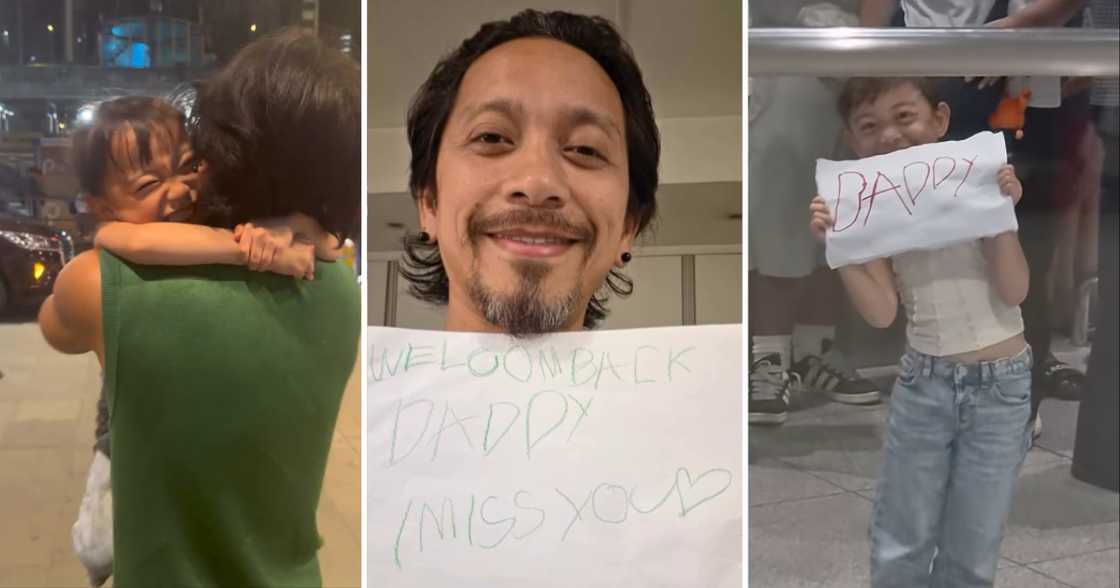 WELCOMBACK
DADDY
I MISS YOU♡
DADDY